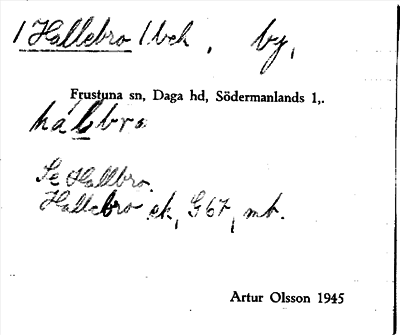 / Hallebro / bek, by,
Frustuna sn, Daga hd, Södermanlands l,.
hal bro
Se Hallbro.
Hallebro ek, G67, mt.
Artur Olsson 1945